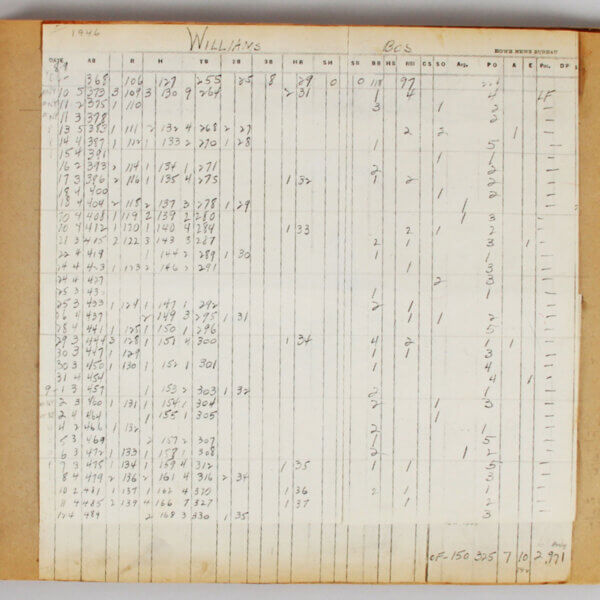 1946
WILLIAMS BOS HOWE NEWS BUREAU
DATE AB R H TB 2B 3B HR SH SB BB RBI CS SO Avg. PO A E Pct. DP
368 106 127 255 25 8 29 0 0 118 97
10 5 373 3 109 3 130 9 264 2 31 1 4 4 LF
11 2 375 1 110 3 1 2
11 3 378 2
13 5 383 1 111 2 132 4 268 2 27 2 2 1
14 4 387 1 112 1 133 2 270 1 28 1 5
15 4 391 1 1
16 2 393 2 114 1 134 1 271 2 2
17 3 396 2 116 1 135 4 275 1 32 1 2 2
18 4 400 1 2
18 4 404 2 118 2 137 3 278 1 29 1
20 4 408 1 119 2 139 2 280 1 3
20 4 412 1 120 1 140 4 284 1 33 2 1 2
21 3 415 2 122 3 143 3 287 2 1 3 1
22 4 419 1 144 2 289 1 30 1 1
24 4 423 1 123 2 146 2 291 1 3
24 4 427 2 3
25 3 430 1 1
25 3 433 1 124 1 147 1 292 2 1
26 4 437 2 149 3 295 1 31 1 1 2
28 4 441 1 125 1 150 1 296 5
29 3 444 3 128 1 151 4 300 1 34 4 2 1 1
30 3 447 1 129 1 1 3
30 3 450 1 130 1 152 1 301 4
31 4 454 4 1
9-1 3 457 1 153 2 303 1 32 2 1
2 3 460 1 131 1 154 1 304 2 1 3
2 4 464 1 155 1 305 1
4 2 466 1 132 2 1
5 3 469 2 157 2 307 1 5
6 3 472 1 133 1 158 1 308 2 1 2
7 3 475 1 134 1 159 4 312 1 35 1 1 5
8 4 479 2 136 2 161 4 316 2 34 3
10 2 481 1 137 1 162 4 320 1 36 2 1 1
11 4 485 2 139 4 166 7 327 1 37 1 2
12 4 489 2 168 3 330 1 35 3
OF-150 325 7 10 2 .971